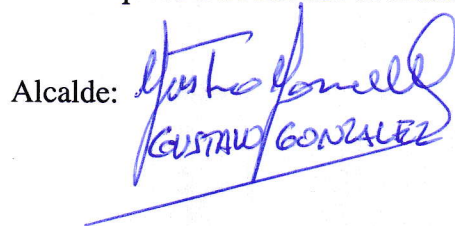 Alcalde: Gustavo Gonzalez
GUSTAVO GONZALEZ